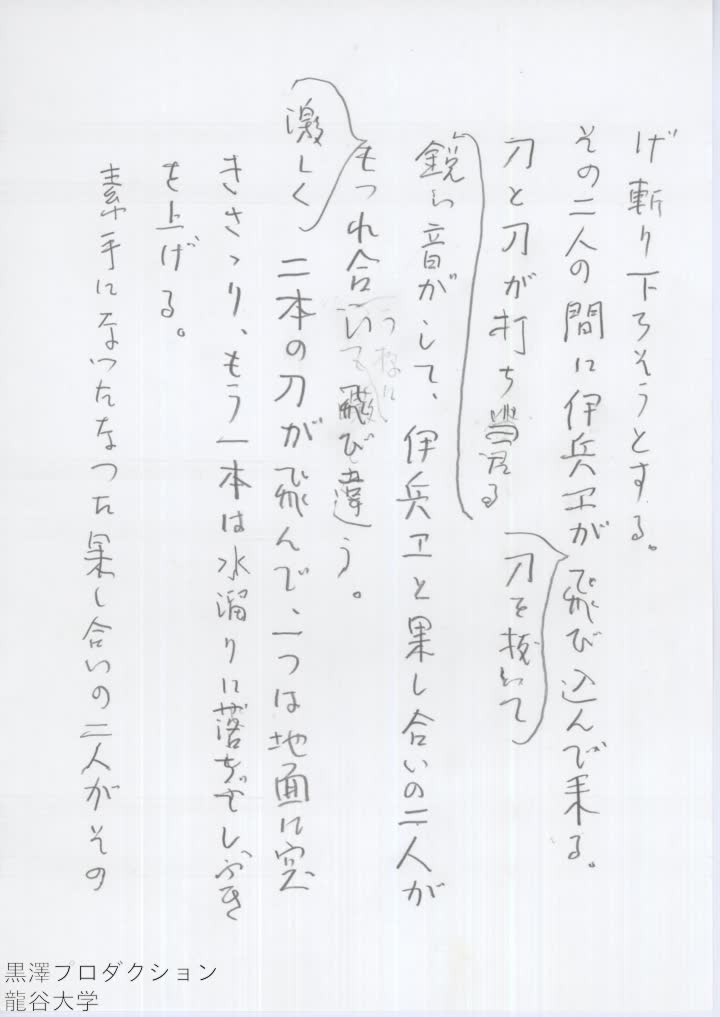 げ斬り下ろそうとする。
その二人の間に伊兵ヱが飛び込んで来る。
刀を抜いて
刀と刀が打ち当る
鋭い音がして、伊兵ヱと果し合いの二人が
激しく
もつれ合い飛び違う。
二本の刀が飛んで、一つは地面に突
きささり、もう一本は水溜りに落ちてしぶき
を上げる。
素手になったなった果し合いの二人がその
黒澤プロダクション
龍谷大学